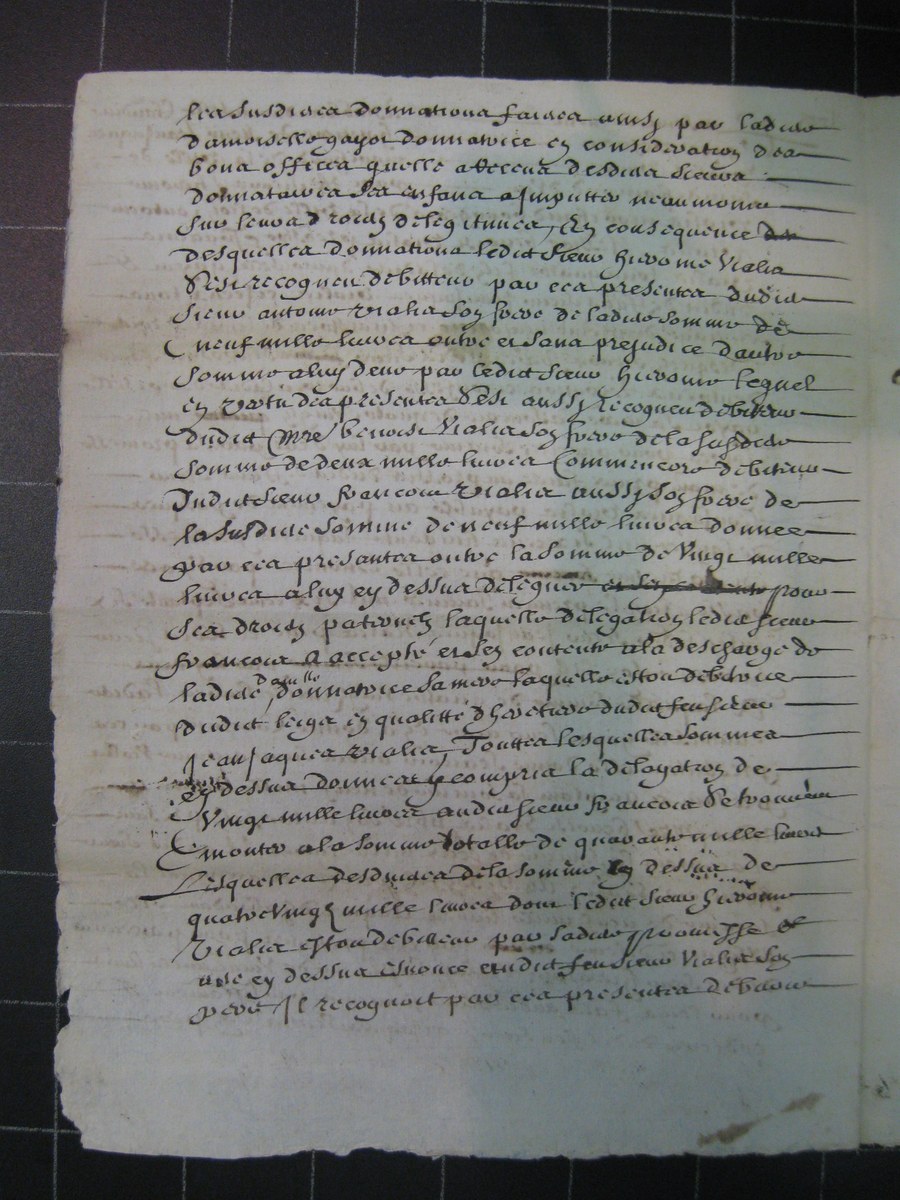 les susdictes donnations faictes aussy par ladicte
damoiselle gayot donnatrice en consideration des
bons offices quelle a Receus desdicts sieurs
donnataires ses enfans a Imputter neanmoins
sur leurs droicts de legitimes, En consequence
desquelles donnations ledict sieur hierome Vialis
sest recogneu debitteur par ces presentes dudict
sieur antoine Vialis son frere de ladicte somme de
neuf mille livres outre et sans prejudice dautre
somme a luy deue par ledict sieur hierome lequel
en vertu des presentes sest aussy recogneu debitteur
dudict Mre benoist Vialis son frere de la susdicte
somme de deux mille livres Comm' encore debiteur
dudict sieur francois Vialis aussy son frere de
la susdicte somme de neuf mille livres donnee
par ces presantes outre la somme de Vingt mille
livres a luy cy dessus deleguee pour
ses droicts paternels laquelle delegation ledict sieur
francois a accepté et sen contente a la descharge de
ladicte damlle donnatrice sa mere laquelle estoit debitrice
dudict legat en qualitté dheretiere dudict feu sieur
Jean Jaques Vialis, Touttes lesquelles sommes
cy dessus donnees y compris la delegation de
Vingt mille livres audict sieur francois se trouvent
monter a la somme totalle de quarante mille livres
Lesquelles desduictes de la somme cy dessus de
quatre Vingt mille livres dont ledict sieur hierome
Vialis estoit debitteur par sadicte promesse
cy dessus enoncé dudict feu sieur Vialis son
pere Il recognoit par ces presentes debvoir